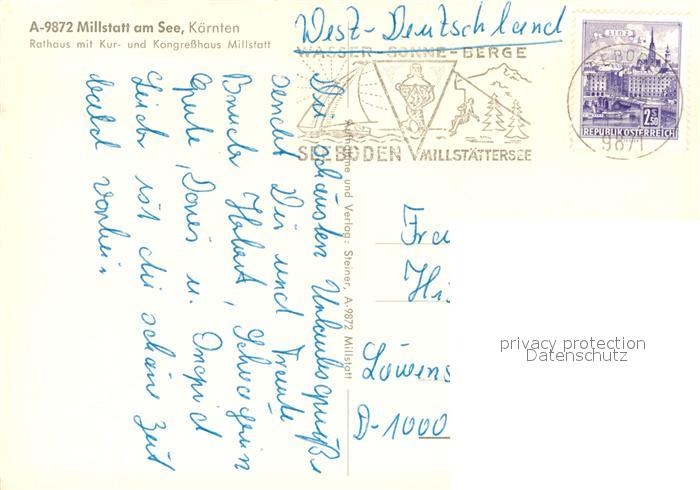 A-9872 Millstatt am See, Kärnten
Rathaus mit Kur- und Kongreßhaus Millstatt
West-Deutschland
WASSER-SONNE-BERGE
SEEBODEN MILLSTÄTTERSEE
LINZ
2.50
REPUBLIK ÖSTERREICH
9871
Die schönsten Urlaubsgrüße
sendet Dir und Traute
Bruder Herbert, Schwägerin
Grete, Doris u. Ingrid
Leider ist die schöne Zeit
bald vorbei.
Aufnahme und Verlag: Steiner, A-9872 Millstatt
Fra
Hi
Löwens
D-1000
privacy protection
Datenschutz